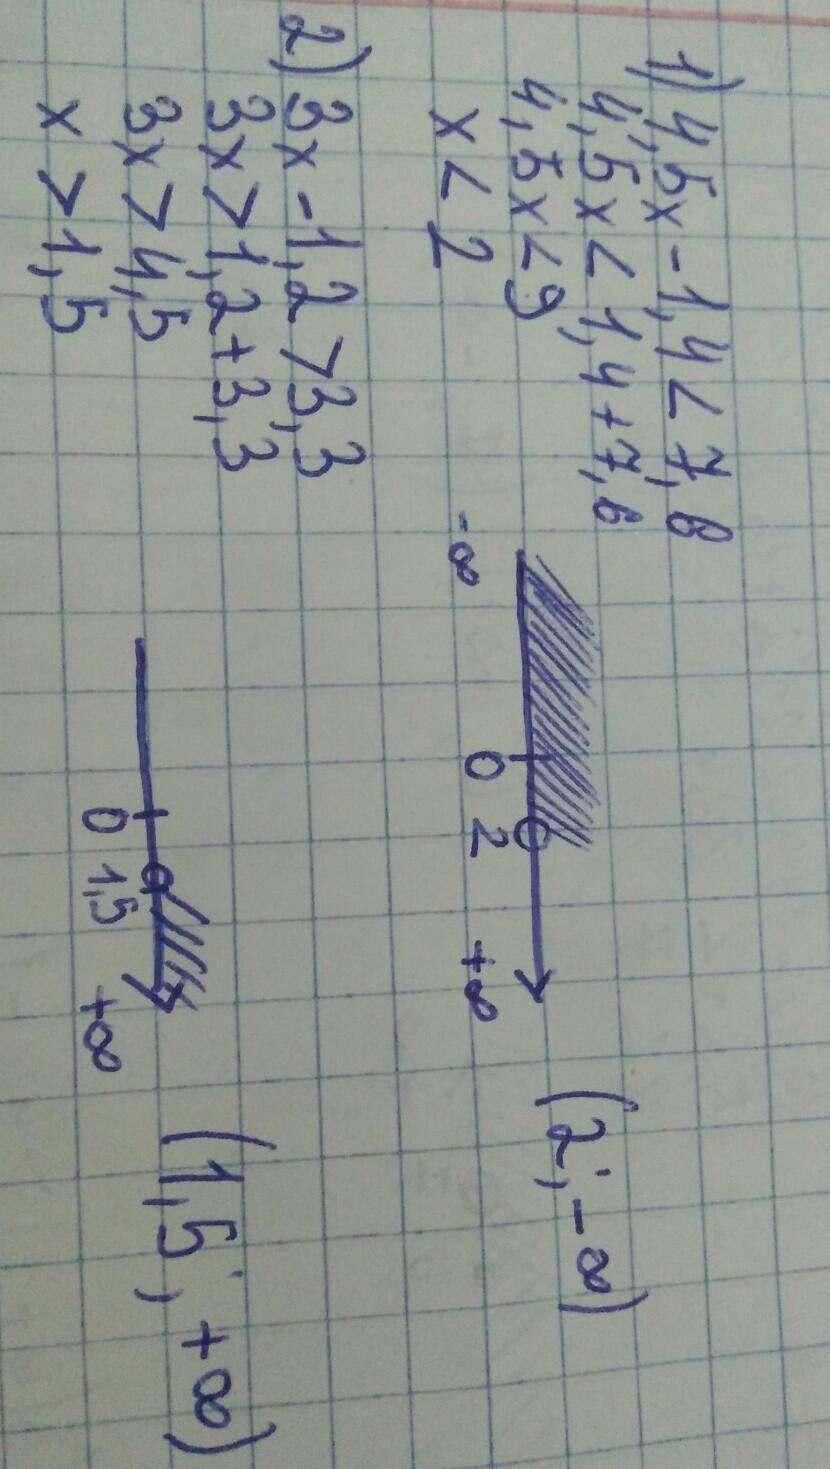 1) 4,5x - 1,4 < 7,6
4,5x < 1,4 + 7,6
4,5x < 9
x < 2
-∞ 0 2 +∞
(2; -∞)
2) 3x - 1,2 > 3,3
3x > 1,2 + 3,3
3x > 4,5
x > 1,5
0 1,5 +∞
(1,5; +∞)